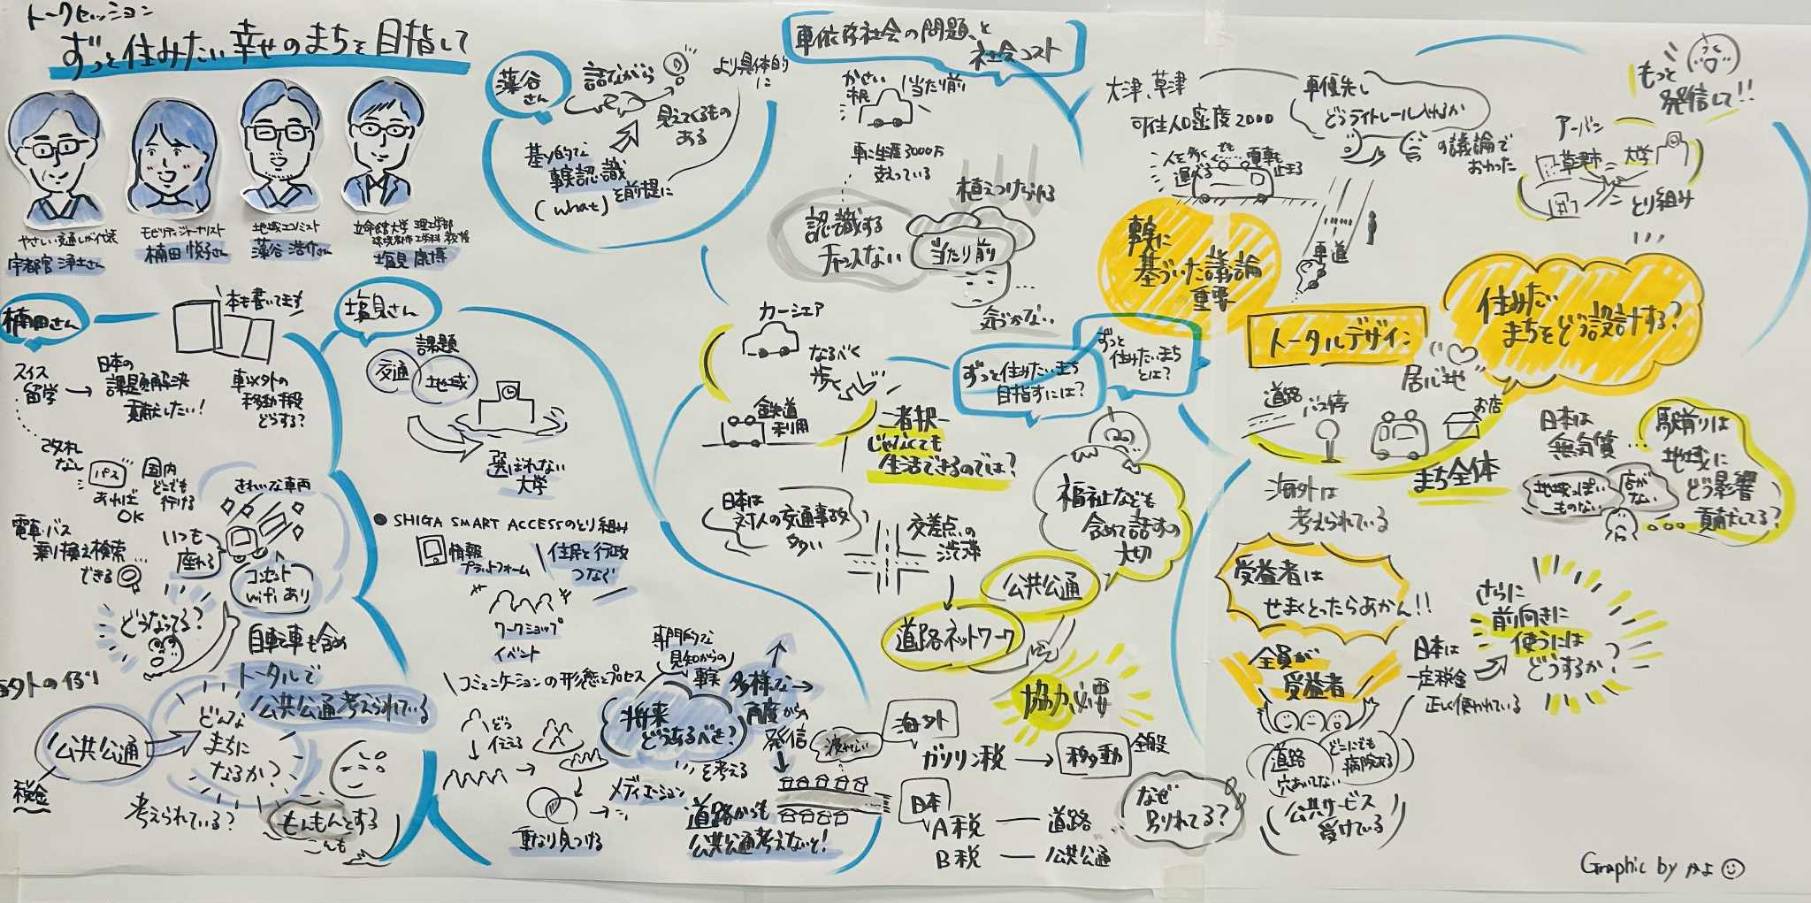 トークセッション
ずっと住みたい幸せのまちを目指して
やさしい交通しが代表
宇都宮 浄人さん
モビリティジャーナリスト
楠田 悦子さん
地域エコノミスト
藻谷 浩介さん
立命館大学 理工学部
環境都市工学科 教授
塩見 康博
楠田さん
本も書いてます
スイス
留学
日本の
課題解決
貢献したい!
車以外の
移動手段
どうする?
改札
なし
パス
あれば
OK
国内
どこでも
行ける
きれいな車両
電車・バス
乗り換え検索
できる
いつも
座れる
コンセント
wifiあり
どうなってる?
自転車も含め
トータルで
公共交通考えられている
公共交通
税金
どんな
まちに
なるか?
考えられている?
もんもんとする
塩見さん
課題
交通
地域
選ばれない
大学
●SHIGA SMART ACCESSのとり組み
情報
プラットフォーム
住民と行政
つなぐ
ワークショップ
イベント
コミュニケーションの形態とプロセス
どう
伝える
重なり見つける
メディエーション
専門的な
見知からの
事実
将来
どうあるべき?
を考える
多様な
角度から
発信
道路からも
公共交通考えないと!
藻谷さん
話しながら
見えてくるもの
ある
より具体的
に
基本的な
事実認識
(what)
を前提に
車依存社会の問題と
社会コスト
当たり前
車に生涯3000万
支えっている
認識する
チャンスない
植えつけられる
当たり前
気づかない
カーシェア
なるべく
歩く
鉄道
利用
二者択一
じゃなくても
生活できるのでは?
日本は
対人の交通事故
多い
交差点の
渋滞
道路ネットワーク
公共交通
協力必要
ずっと住みたいまち
目指すには?
ずっと
住みたいまち
とは?
福祉なども
含めて話すの
大切
海外
ガソリン税
移動
全般
日本
A税 ― 道路
B税 ― 公共交通
なぜ
別れてる?
大津、草津
可住人口密度2000
車優先し
どうライトレール入れるか
の議論で
おわった
人を多く
運べる
でも
電車も
止まる
車道
事実に
基づいた議論
重要
もっと
発信して!!
アーバン
草津市
大学
とり組み
住みたい
まちをどう設計する?
トータルデザイン
居心地
道路
バス停
お店
まち全体
海外は
考えられている
日本は
無気質
地域っぽい
ものない
店が
ない
駅前りは
地域に
どう影響
貢献してる?
受益者は
せまくとったらあかん!!
全員が
受益者
道路
穴あいてない
どこにでも
病院ある
公共サービス
受けている
日本は
一定税金
正しく使われている
さらに
前向きに
使うには
どうするか?
Graphic by かよ